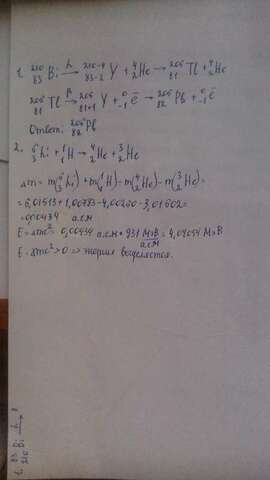 1. ²¹⁰₈₃Bi →(α) ²¹⁰⁻⁴₈₃₋₂Y + ⁴₂He → ²⁰⁶₈₁Tl + ⁴₂He
²⁰⁶₈₁Tl →(β) ²⁰⁶₈₁₊₁Y + ⁰₋₁ē → ²⁰⁶₈₂Pb + ⁰₋₁ē
Ответ: ²⁰⁶₈₂Pb
2. ⁶₃Li + ¹₁H → ⁴₂He + ³₂He
Δm = m(⁶₃Li) + m(¹₁H) - m(⁴₂He) - m(³₂He) =
= 6,01513 + 1,00783 - 4,00260 - 3,01602 =
= 0,00434 а.е.м
E = Δmc² = 0,00434 а.е.м * 931 МэВ/а.е.м = 4,04054 МэВ
E = Δmc² > 0 => энергия выделяется.
1. ²¹⁰₈₃Bi →